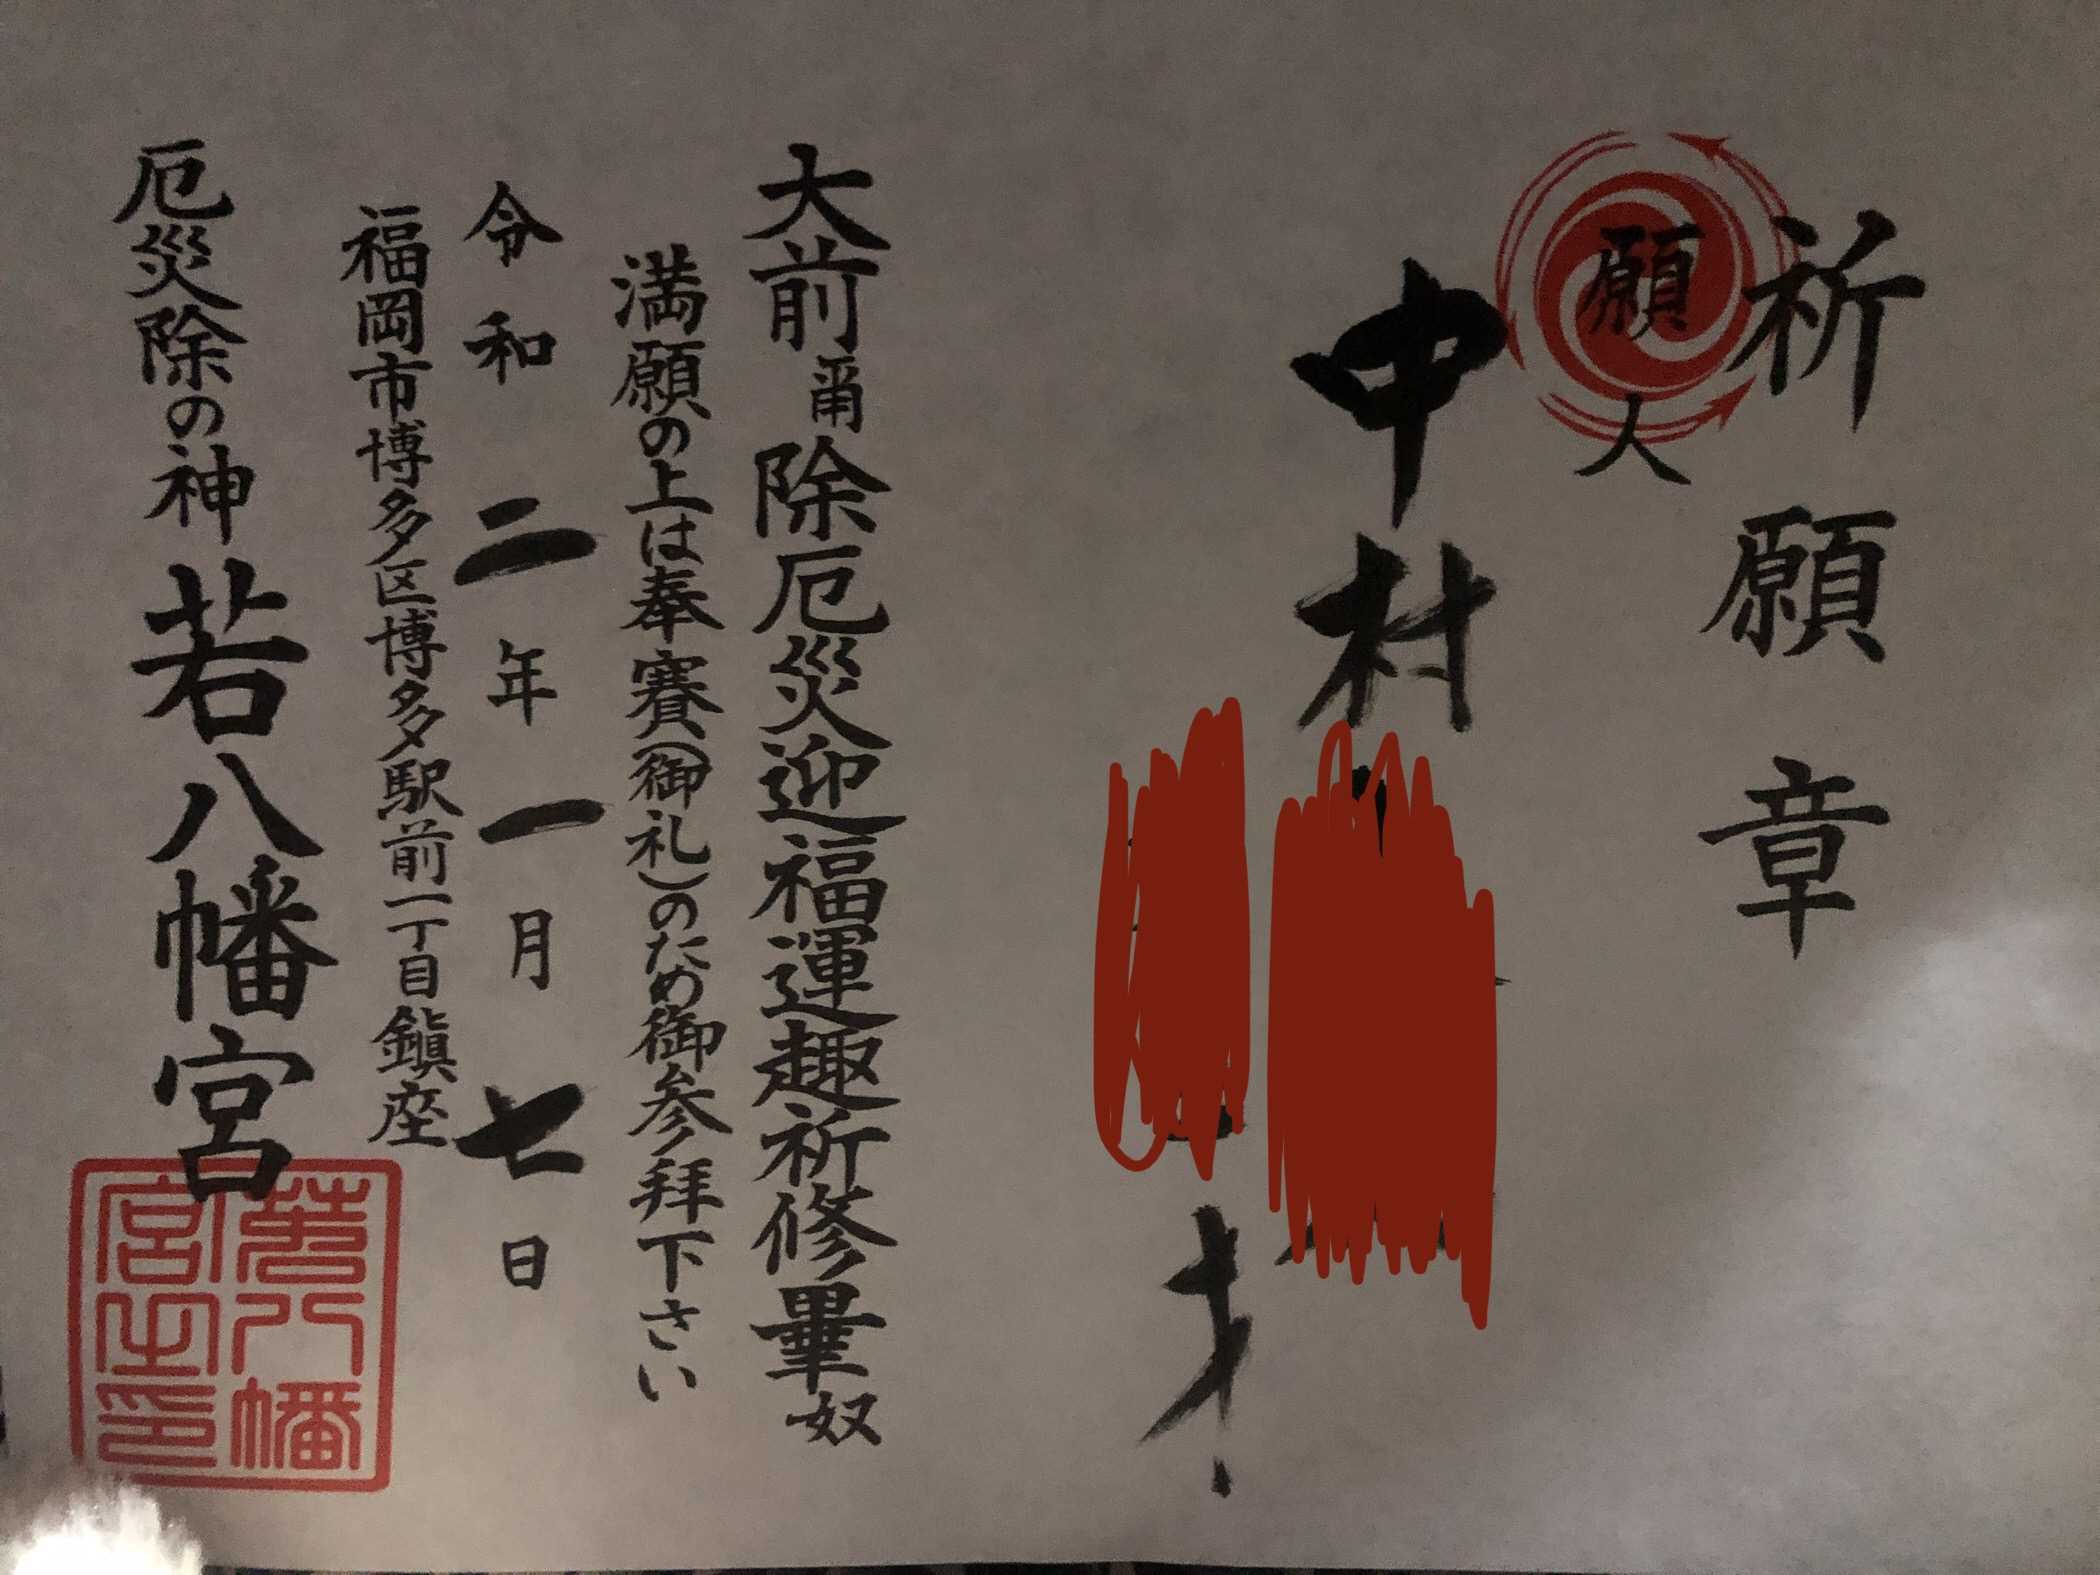 祈願章
願人
中村
才
大前爾除厄災迎福運趣祈修畢奴
満願の上は奉賽(御礼)のため御参拝下さい
令和二年一月七日
福岡市博多区博多駅前一丁目鎭座
厄災除の神若八幡宮
若八幡宮之印